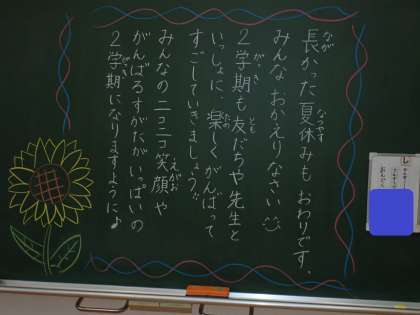 長かった夏休みもおわりです、
みんなおかえりなさい
2学期も友だちや先生と
いっしょに、楽しくがんばって
すごしていきましょう。
みんなのニコニコ笑顔や
がんばるすがたがいっぱいの
2学期になりますように♪